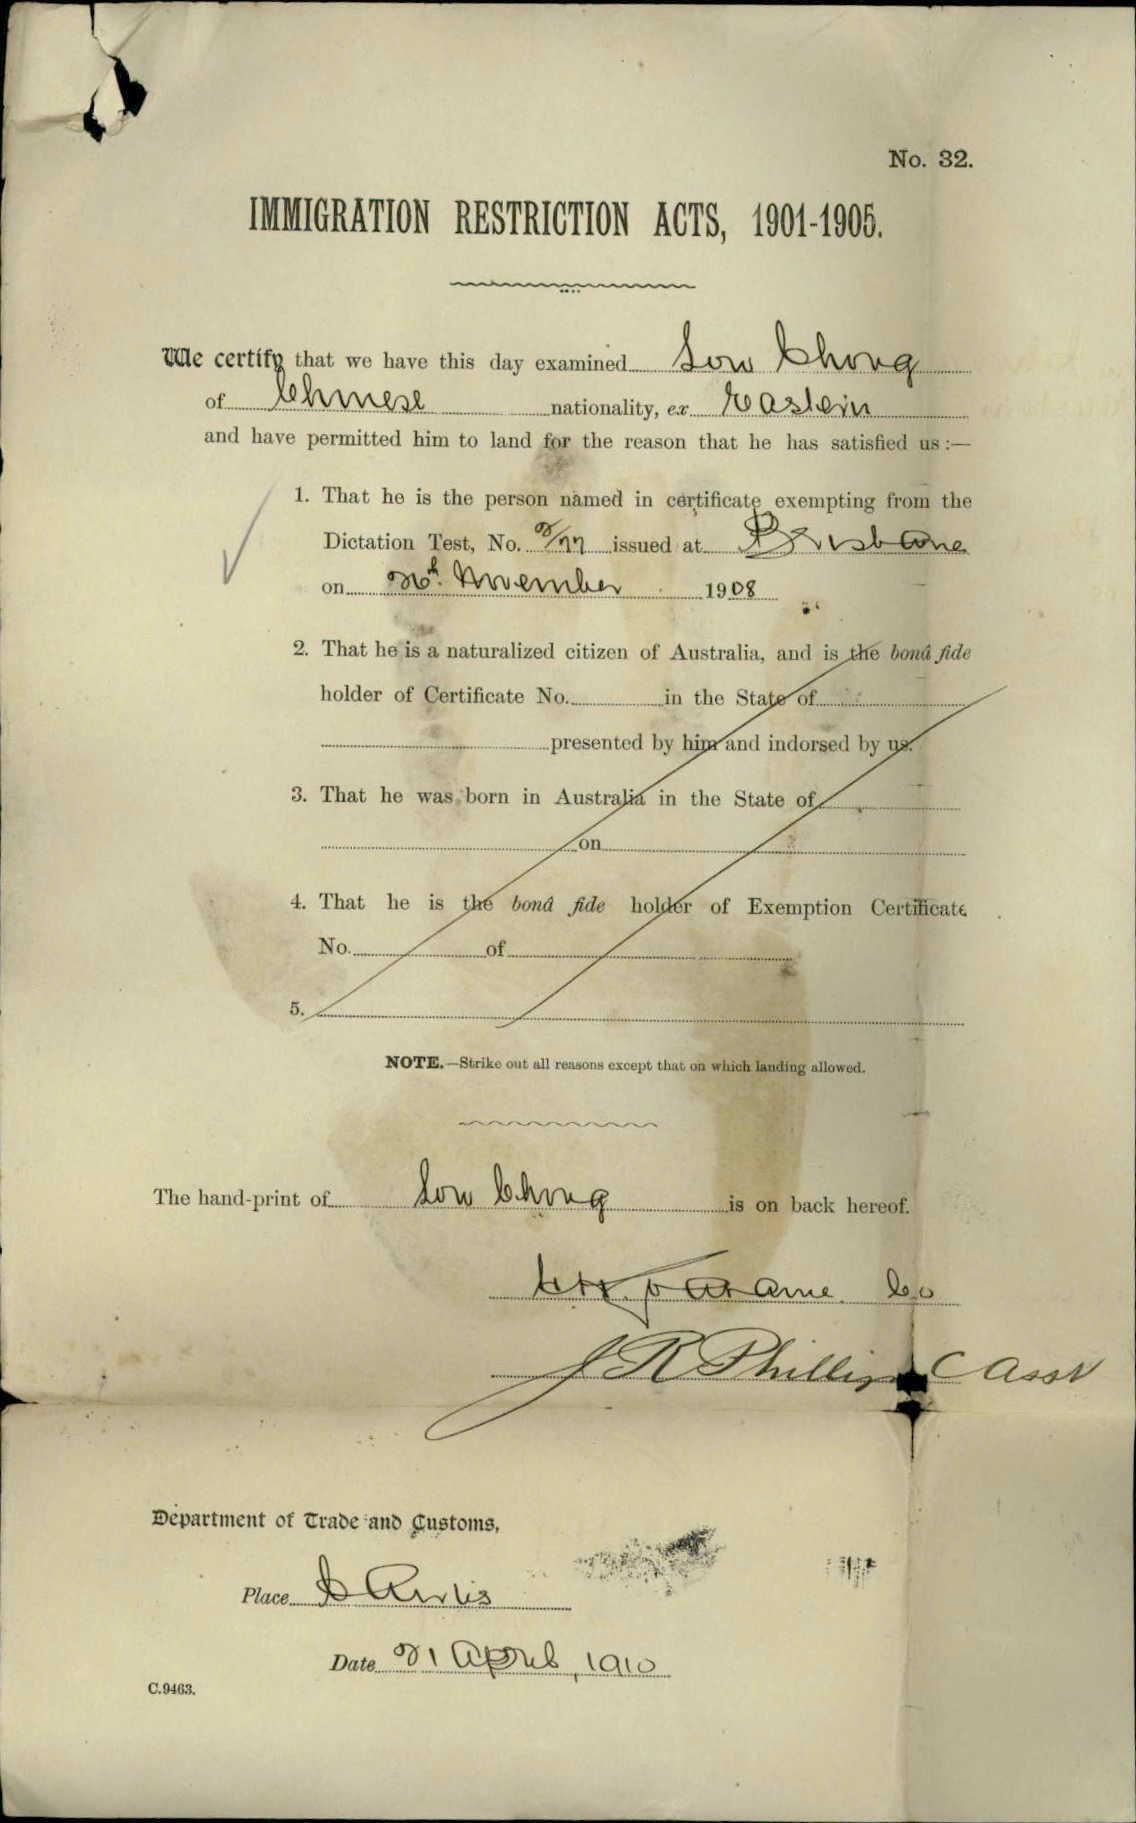 No. 32.
IMMIGRATION RESTRICTION ACTS, 1901-1905.
We certify that we have this day examined Sow Chong
of Chinese nationality, ex Eastern
and have permitted him to land for the reason that he has satisfied us :—
1. That he is the person named in certificate exempting from the
Dictation Test, No. 2/77 issued at Brisbane
on November 1908
2. That he is a naturalized citizen of Australia, and is the bonâ fide
holder of Certificate No. in the State of
presented by him and indorsed by us.
3. That he was born in Australia in the State of
on
4. That he is the bonâ fide holder of Exemption Certificate
No. of
5.
NOTE.—Strike out all reasons except that on which landing allowed.
The hand-print of Sow Chong is on back hereof.
J R Phillips C Asst
Department of Trade and Customs,
Place Cairns
Date 21 April, 1910
C.9463.